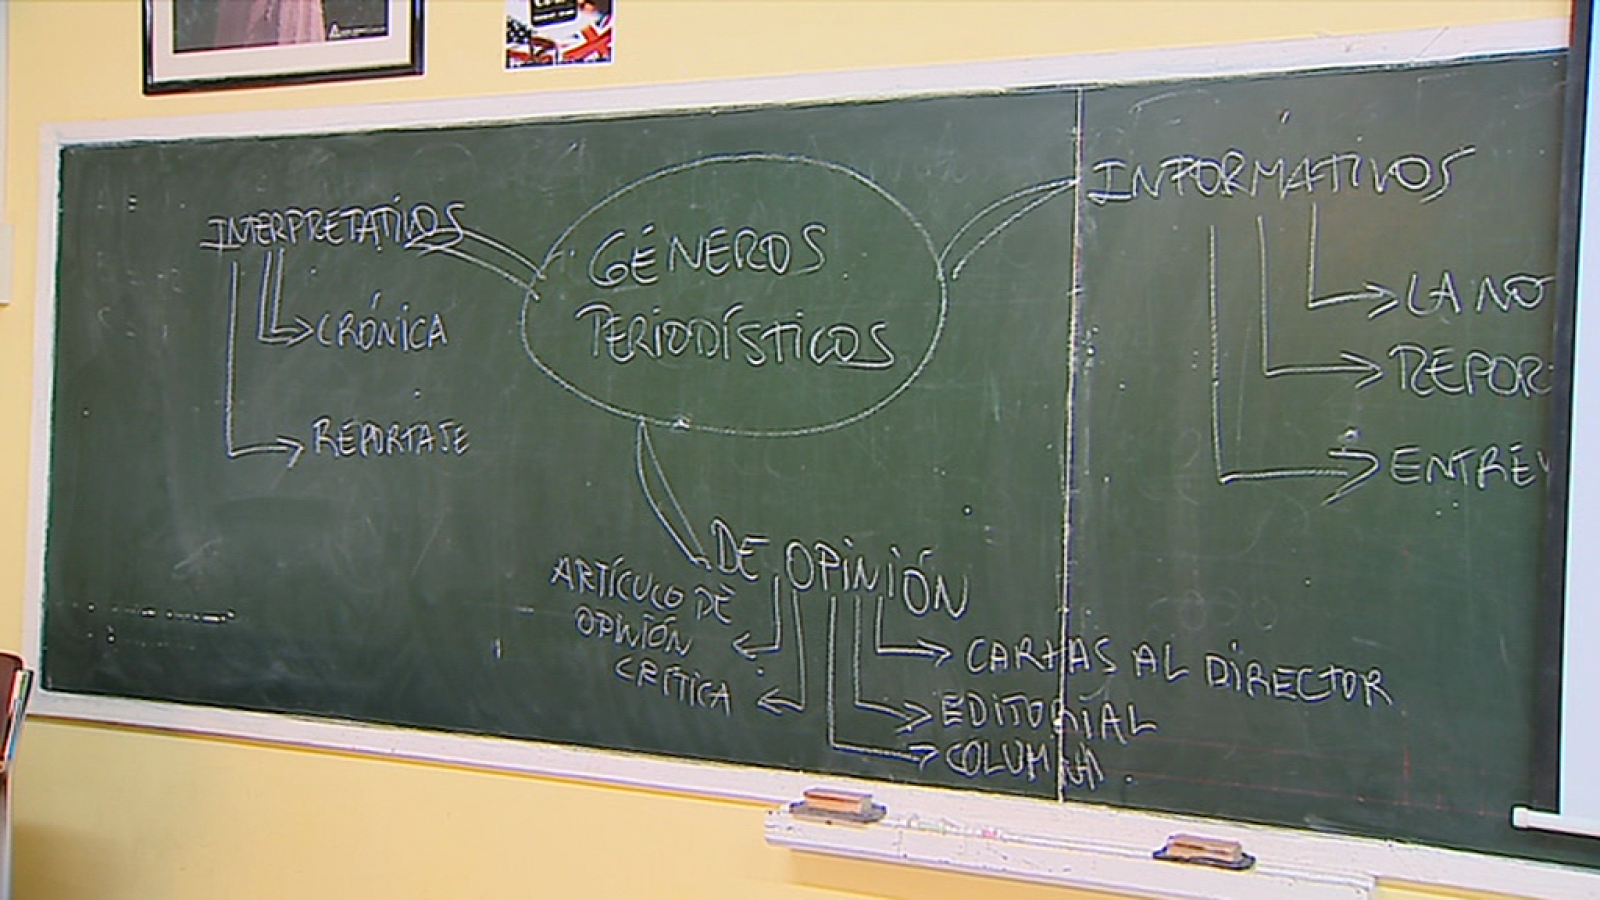 GÉNEROS
PERIODÍSTICOS
INTERPRETATIVOS
CRÓNICA
REPORTAJE
DE OPINIÓN
ARTÍCULO DE
OPINIÓN
CRÍTICA
CARTAS AL DIRECTOR
EDITORIAL
COLUMNA
INFORMATIVOS
LA NO
REPOR
ENTREV